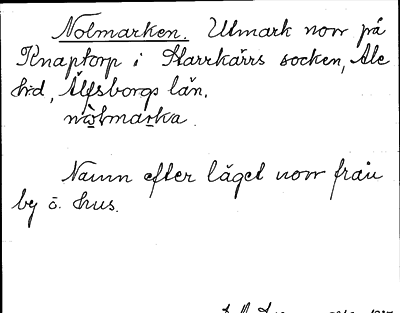 Nolmarken. Utmark norr på
Knaptorp i Starrkärrs socken, Ale
hd, Älfsborgs län.
nòlmarka.
Namn efter läget norr från
by o. hus.